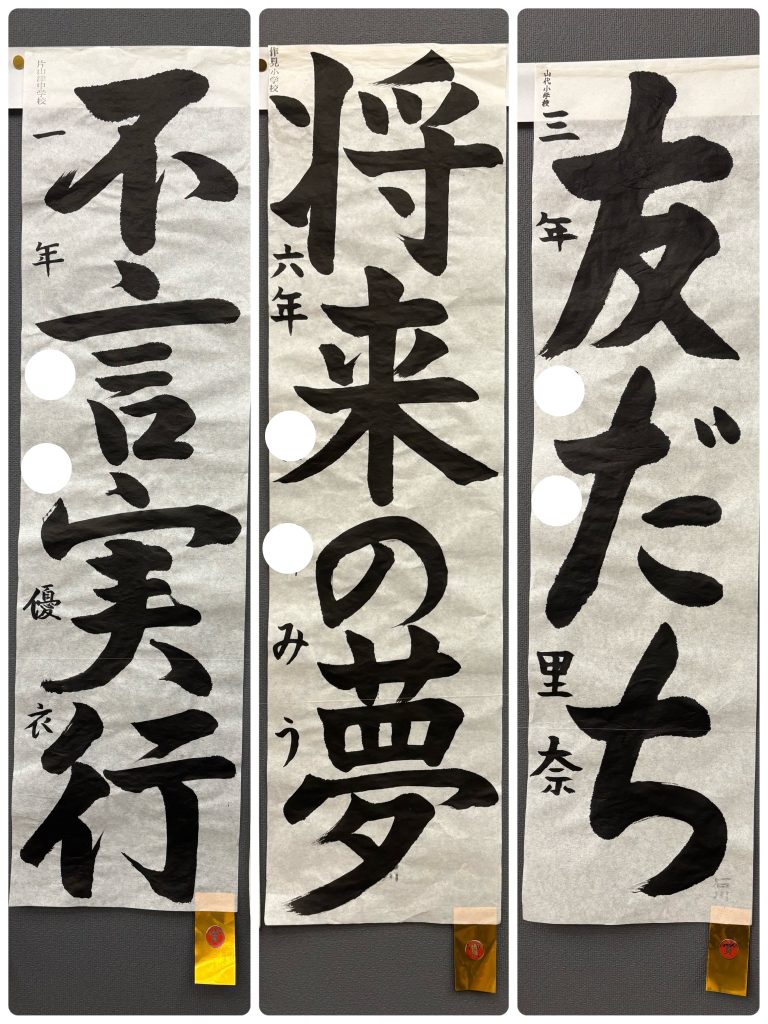 片山津中学校
不言実行
一年
優衣
作見小学校
将来の夢
六年
みう
山代小学校
友だち
三年
里奈